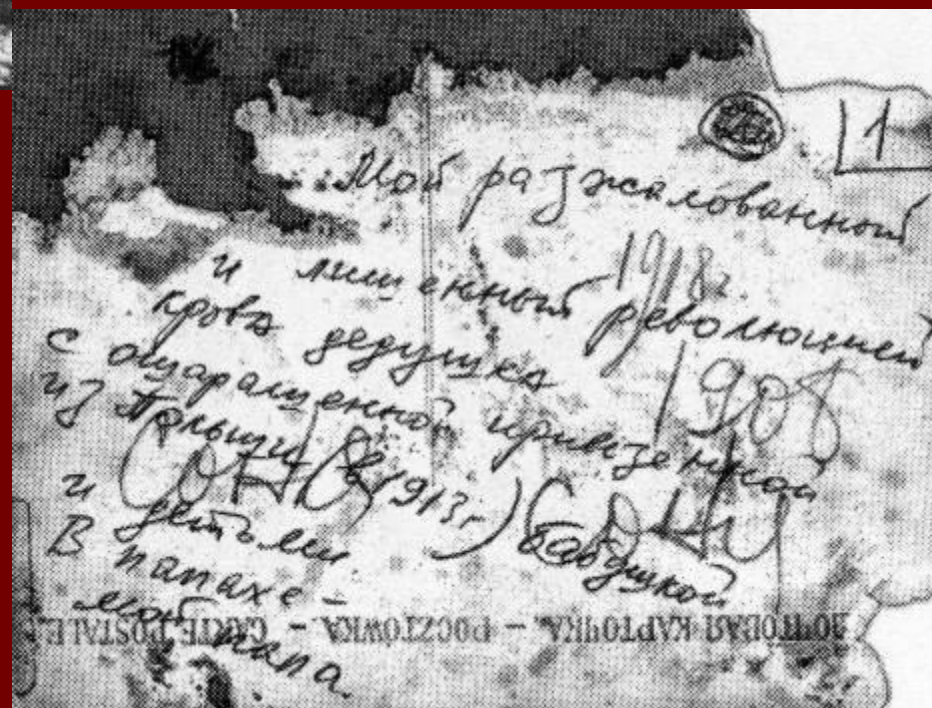 1
Мой разжалованный
1918г.
и лишенный революцией
крова дедушка
1908
с ошарашенной привезенной
из Польши (в 1913г.) бабушкой
и детьми.
В папахе –
мой папа.
ПОЧТОВАЯ КАРТОЧКА. – POCZTÓWKA. – CARTE POSTALE.